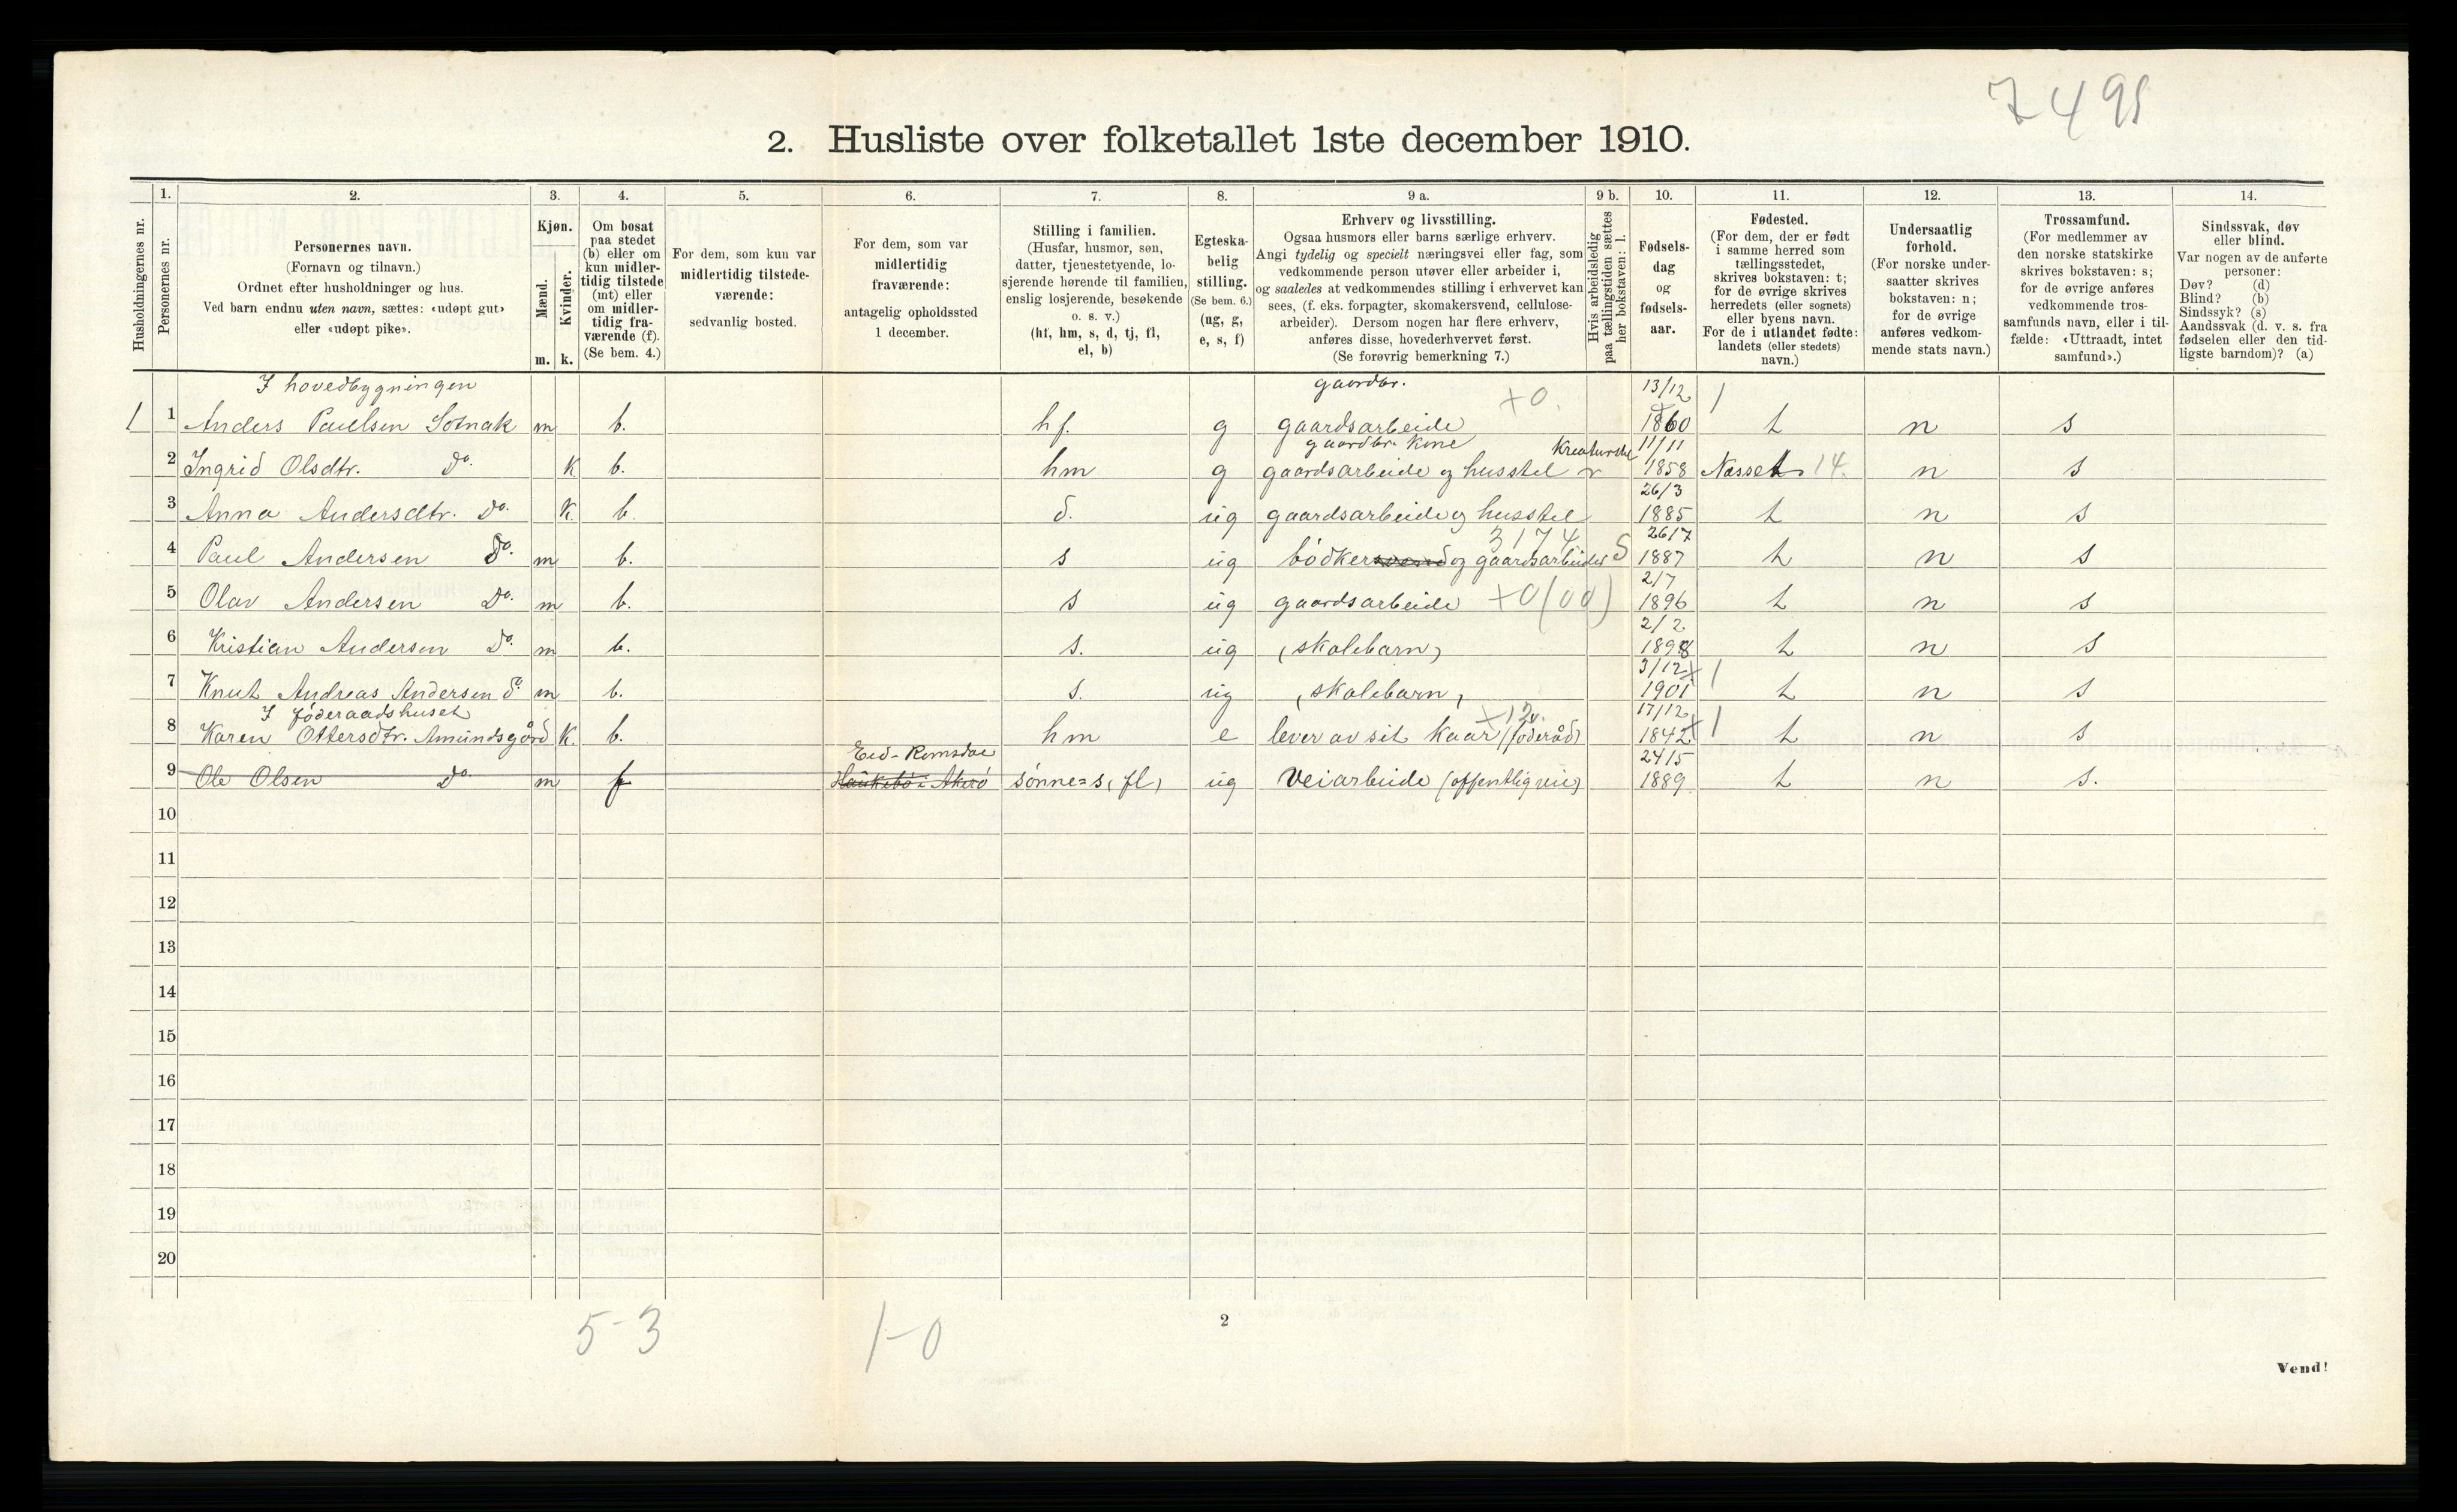 7491
2. Husliste over folketallet 1ste december 1910.
1. 2. 3. 4. 5. 6. 7. 8. 9 a. 9 b. 10. 11. 12. 13. 14.
Husholdningernes nr.
Personernes nr.
Personernes navn.
(Fornavn og tilnavn.)
Ordnet efter husholdninger og hus.
Ved barn endnu uten navn, sættes: «udøpt gut»
eller «udøpt pike».
Kjøn.
Mænd.
Kvinder.
m. k.
Om bosat
paa stedet
(b) eller om
kun midler-
tidig tilstede
(mt) eller
om midler-
tidig fra-
værende (f).
(Se bem. 4.)
For dem, som kun var
midlertidig tilstede-
værende:
sedvanlig bosted.
For dem, som var
midlertidig
fraværende:
antagelig opholdssted
1 december.
Stilling i familien.
(Husfar, husmor, søn,
datter, tjenestetyende, lo-
sjerende hørende til familien,
enslig losjerende, besøkende
o. s. v.)
(hf, hm, s, d, tj, fl,
el, b)
Egteska-
belig
stilling.
(Se bem. 6.)
(ug, g,
e, s, f)
Erhverv og livsstilling.
Ogsaa husmors eller barns særlige erhverv.
Angi tydelig og specielt næringsvei eller fag, som
vedkommende person utøver eller arbeider i,
og saaledes at vedkommendes stilling i erhvervet kan
sees, (f. eks. forpagter, skomakersvend, cellulose-
arbeider). Dersom nogen har flere erhverv,
anføres disse, hovederhvervet først.
(Se forøvrig bemerkning 7.)
Hvis arbeidsledig
paa tællingstiden sættes
her bokstaven: l.
Fødsels-
dag
og
fødsels-
aar.
Fødested.
(For dem, der er født
i samme herred som
tællingsstedet,
skrives bokstaven: t;
for de øvrige skrives
herredets (eller sognets)
eller byens navn.
For de i utlandet fødte:
landets (eller stedets)
navn.)
Undersaatlig
forhold.
(For norske under-
saatter skrives
bokstaven: n;
for de øvrige
anføres vedkom-
mende stats navn.)
Trossamfund.
(For medlemmer av
den norske statskirke
skrives bokstaven: s;
for de øvrige anføres
vedkommende tros-
samfunds navn, eller i til-
fælde: «Uttraadt, intet
samfund».)
Sindssvak, døv
eller blind.
Var nogen av de anførte
personer:
Døv? (d)
Blind? (b)
Sindssyk? (s)
Aandssvak (d. v. s. fra
fødselen eller den tid-
ligste barndom)? (a)
I hovedbygningen gaardbr. +0. 13/12
1 1 Anders Paulsen Sotnak m b. hf. g gaardsarbeide 1860 1 t n s
gaardbr. Kone 11/11
2 Ingrid Olsdtr. Do. k b. hm g gaardsarbeide og husstel 1858 Næsset 14. n s
26/3
3 Anna Andersdtr. Do. k. b. d. ug gaardsarbeide og husstel 1885 t n s
3174 26/7
4 Paul Andersen Do. m b. s ug bödkersvend og gaardsarbeider S 1887 t n s
2/7
5 Olav Andersen Do. m b. s ug gaardsarbeide +0(od) 1896 t n s
2/2
6 Kristian Andersen Do. m b. s. ug (skolebarn) 1898 t n s
3/12
7 Knut Andreas Andersen Do m b. s. ug (skolebarn) 1901 1 t n s
I föderaadshuset 17/12
8 Karen Ottersdtr. Amundsgård k. b. hm e lever av sit Kaar (föderåd) 1842 1 t n s
Eid-Romsdal 24/5
9 Ole Olsen do m f Haukebö i Akerö sönne=s (fl) ug Veiarbeide (offentlig vei) 1889 t n s.
10
11
12
13
14
15
16
17
18
19
20
5-3 1-0
2
Vend!